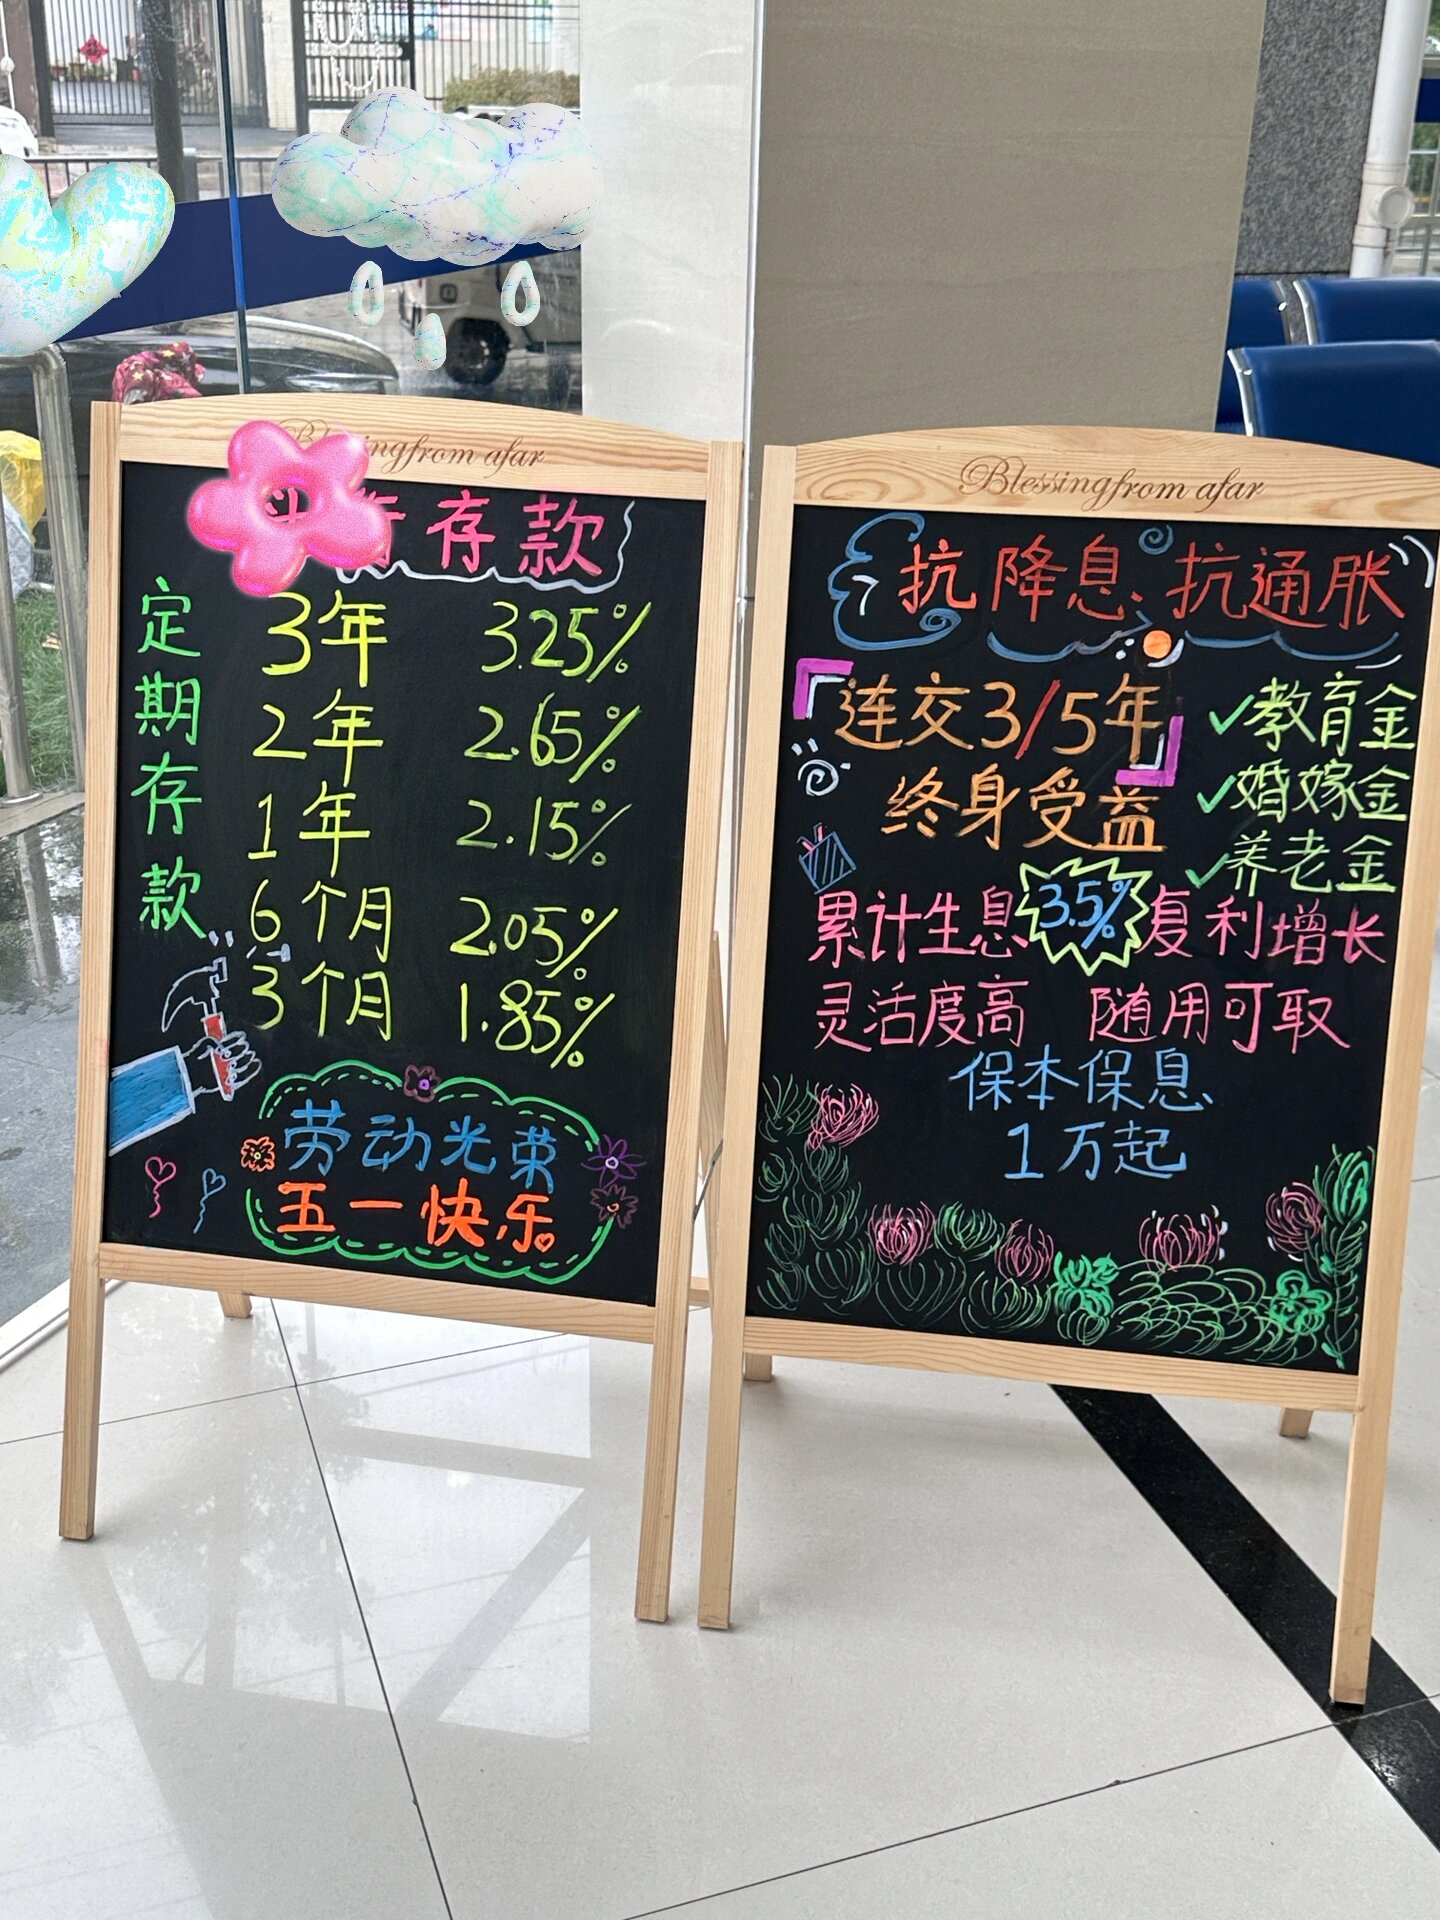 Blessingfrom afar
存款
定期存款
3年 3.25%
2年 2.65%
1年 2.15%
6个月 2.05%
3个月 1.85%
劳动光荣
五一快乐
Blessingfrom afar
抗降息、抗通胀
连交3/5年
终身受益
✓教育金
✓婚嫁金
✓养老金
累计生息3.5%复利增长
灵活度高 随用可取
保本保息
1万起